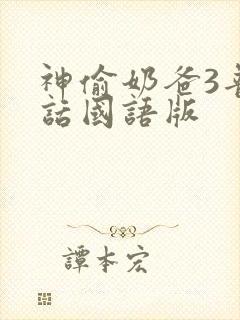 神偷奶爸3普
話國語版
譚本宏